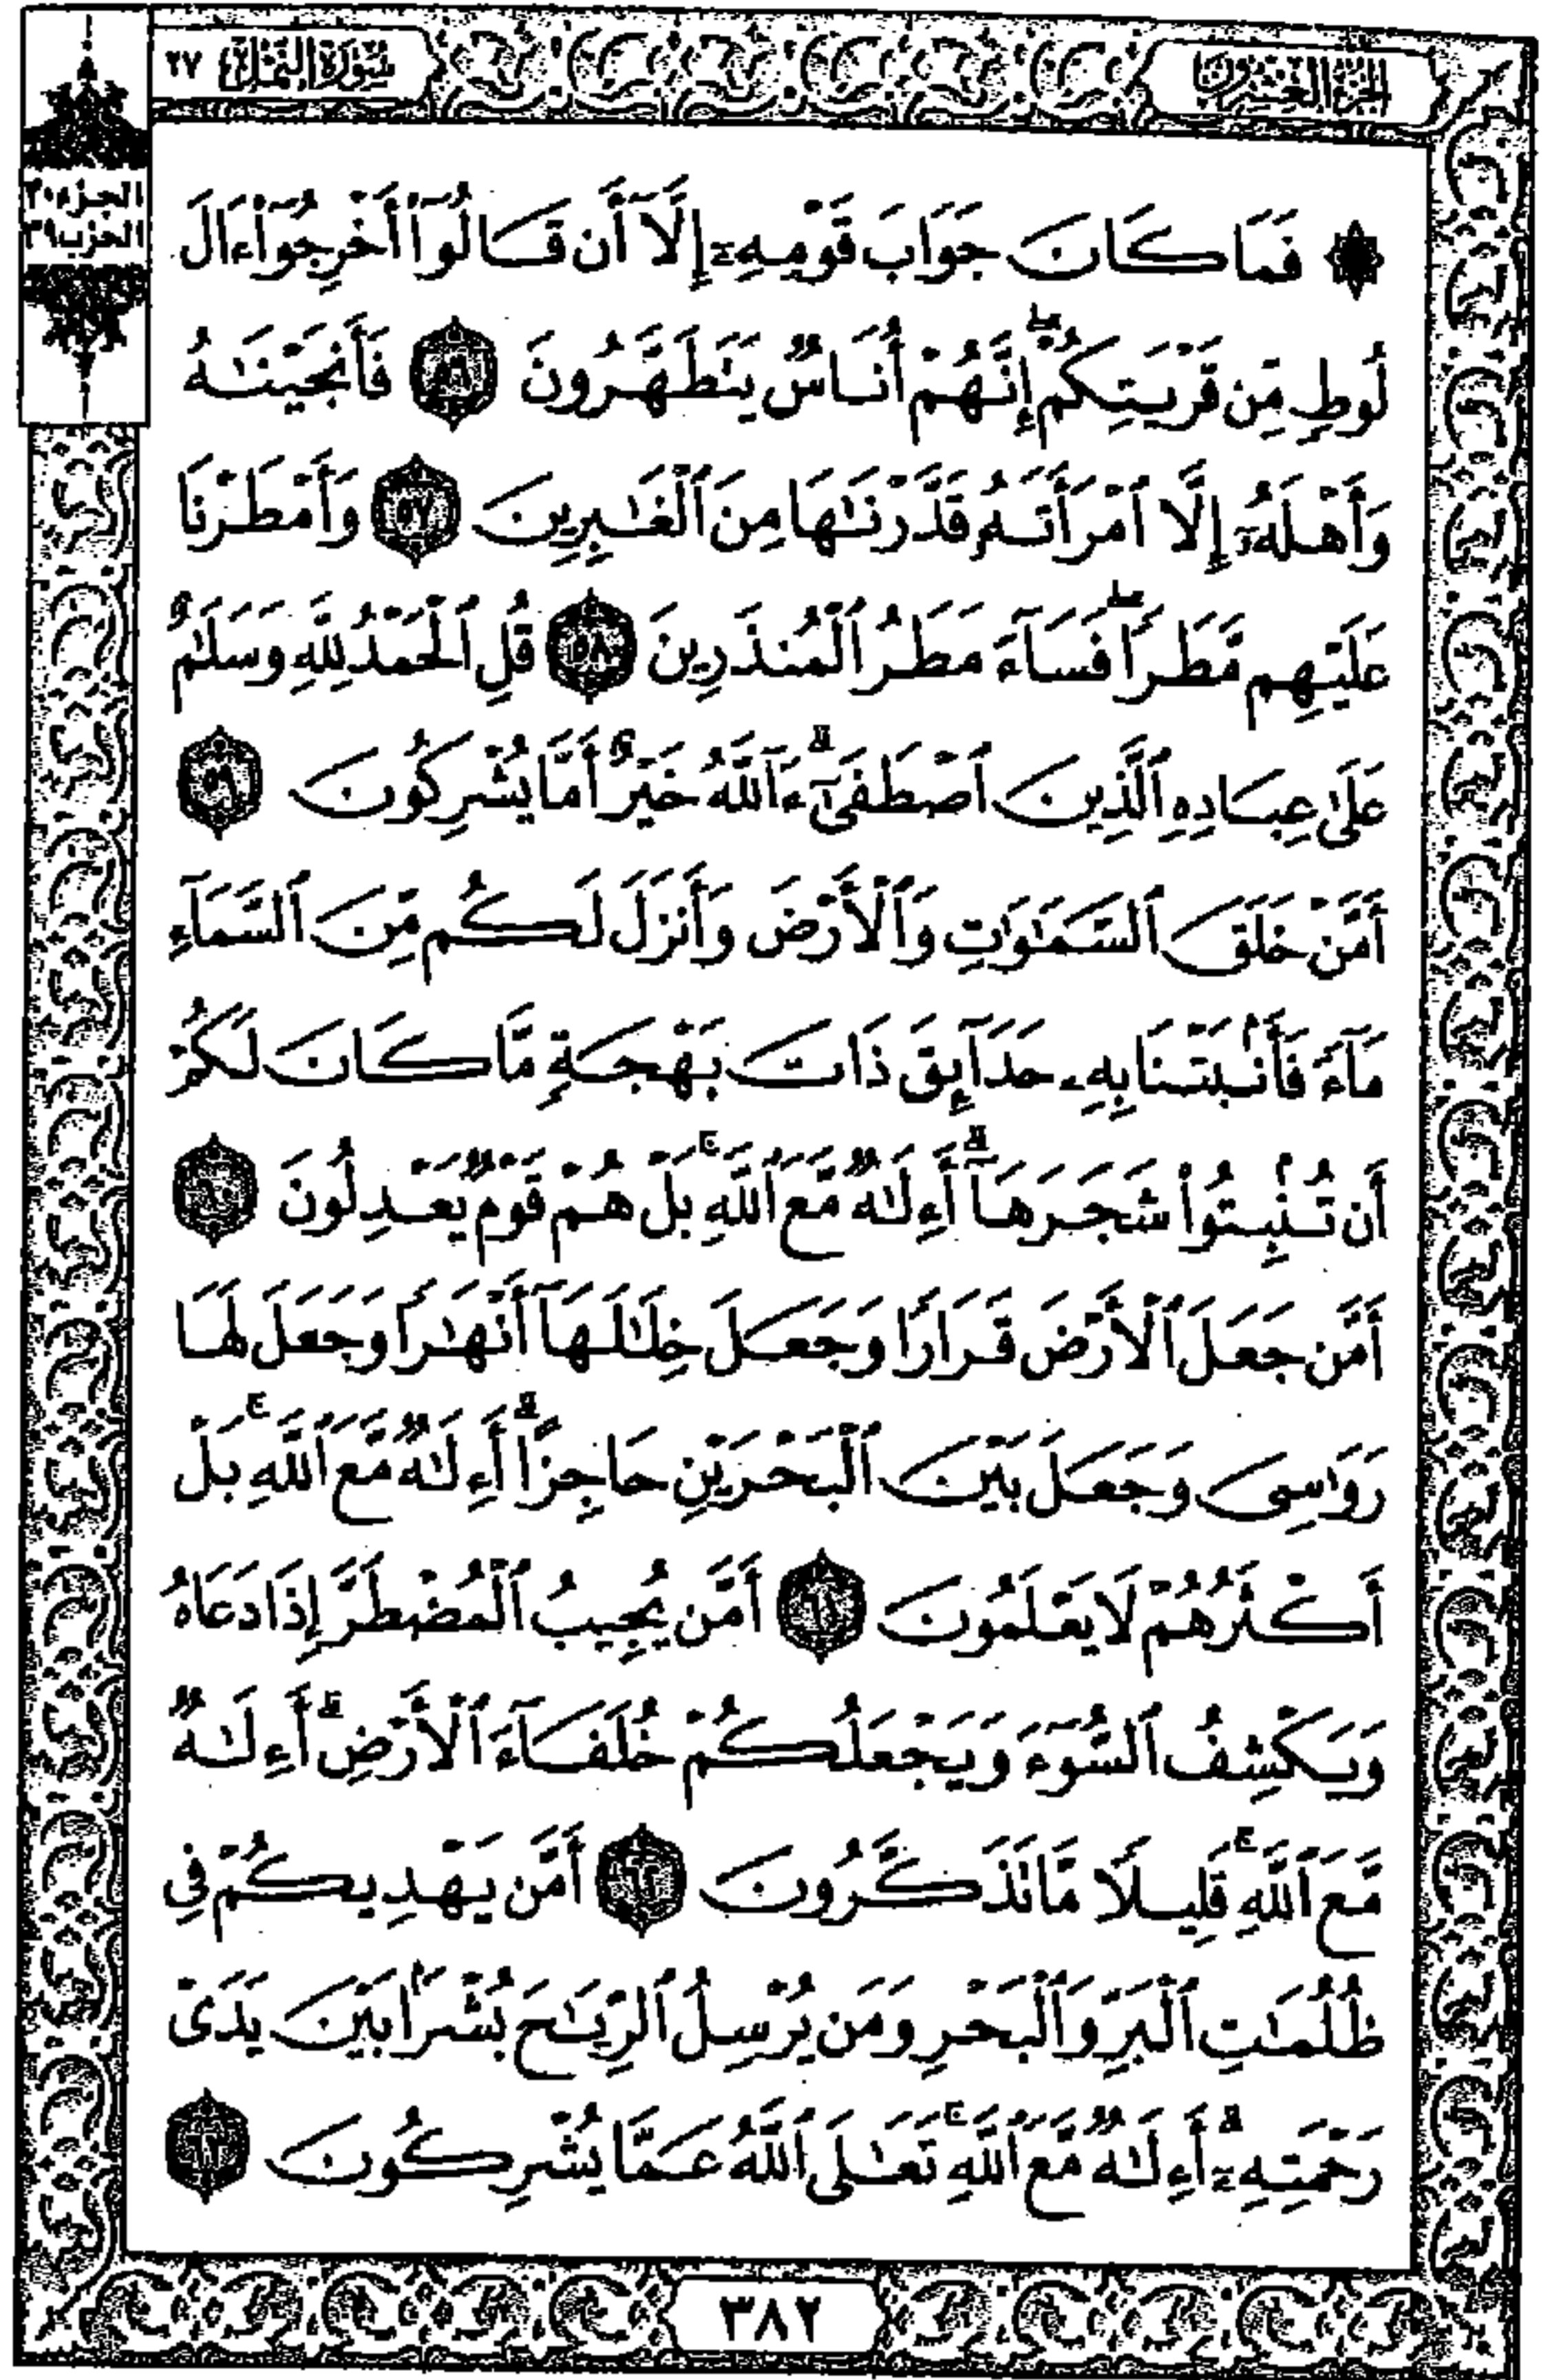 الجزء العشرون
سورة النمل ٢٧
الجزء ٢٠
الحزب ٣٩
۞ فَمَا كَانَ جَوَابَ قَوْمِهِۦٓ إِلَّآ أَن قَالُوٓا۟ أَخْرِجُوٓا۟ ءَالَ
لُوطٍ مِّن قَرْيَتِكُمْ ۖ إِنَّهُمْ أُنَاسٌ يَتَطَهَّرُونَ ٥٦ فَأَنجَيْنَـٰهُ
وَأَهْلَهُۥٓ إِلَّا ٱمْرَأَتَهُۥ قَدَّرْنَـٰهَا مِنَ ٱلْغَـٰبِرِينَ ٥٧ وَأَمْطَرْنَا
عَلَيْهِم مَّطَرًا ۖ فَسَآءَ مَطَرُ ٱلْمُنذَرِينَ ٥٨ قُلِ ٱلْحَمْدُ لِلَّهِ وَسَلَـٰمٌ
عَلَىٰ عِبَادِهِ ٱلَّذِينَ ٱصْطَفَىٰٓ ۗ ءَآللَّهُ خَيْرٌ أَمَّا يُشْرِكُونَ ٥٩
أَمَّنْ خَلَقَ ٱلسَّمَـٰوَٰتِ وَٱلْأَرْضَ وَأَنزَلَ لَكُم مِّنَ ٱلسَّمَآءِ
مَآءً فَأَنۢبَتْنَا بِهِۦ حَدَآئِقَ ذَاتَ بَهْجَةٍ مَّا كَانَ لَكُمْ
أَن تُنۢبِتُوا۟ شَجَرَهَآ ۗ أَءِلَـٰهٌ مَّعَ ٱللَّهِ ۚ بَلْ هُمْ قَوْمٌ يَعْدِلُونَ ٦٠
أَمَّن جَعَلَ ٱلْأَرْضَ قَرَارًا وَجَعَلَ خِلَـٰلَهَآ أَنْهَـٰرًا وَجَعَلَ لَهَا
رَوَٰسِىَ وَجَعَلَ بَيْنَ ٱلْبَحْرَيْنِ حَاجِزًا ۗ أَءِلَـٰهٌ مَّعَ ٱللَّهِ ۚ بَلْ
أَكْثَرُهُمْ لَا يَعْلَمُونَ ٦١ أَمَّن يُجِيبُ ٱلْمُضْطَرَّ إِذَا دَعَاهُ
وَيَكْشِفُ ٱلسُّوٓءَ وَيَجْعَلُكُمْ خُلَفَآءَ ٱلْأَرْضِ ۗ أَءِلَـٰهٌ
مَّعَ ٱللَّهِ ۚ قَلِيلًا مَّا تَذَكَّرُونَ ٦٢ أَمَّن يَهْدِيكُمْ فِى
ظُلُمَـٰتِ ٱلْبَرِّ وَٱلْبَحْرِ وَمَن يُرْسِلُ ٱلرِّيَـٰحَ بُشْرًۢا بَيْنَ يَدَىْ
رَحْمَتِهِۦٓ ۗ أَءِلَـٰهٌ مَّعَ ٱللَّهِ ۚ تَعَـٰلَى ٱللَّهُ عَمَّا يُشْرِكُونَ ٦٣
٣٨٢